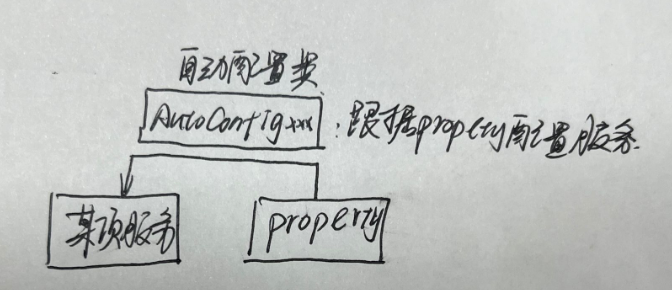 自动配置类
AutoConfigxxx : 跟据property配置服务.
某项服务 property